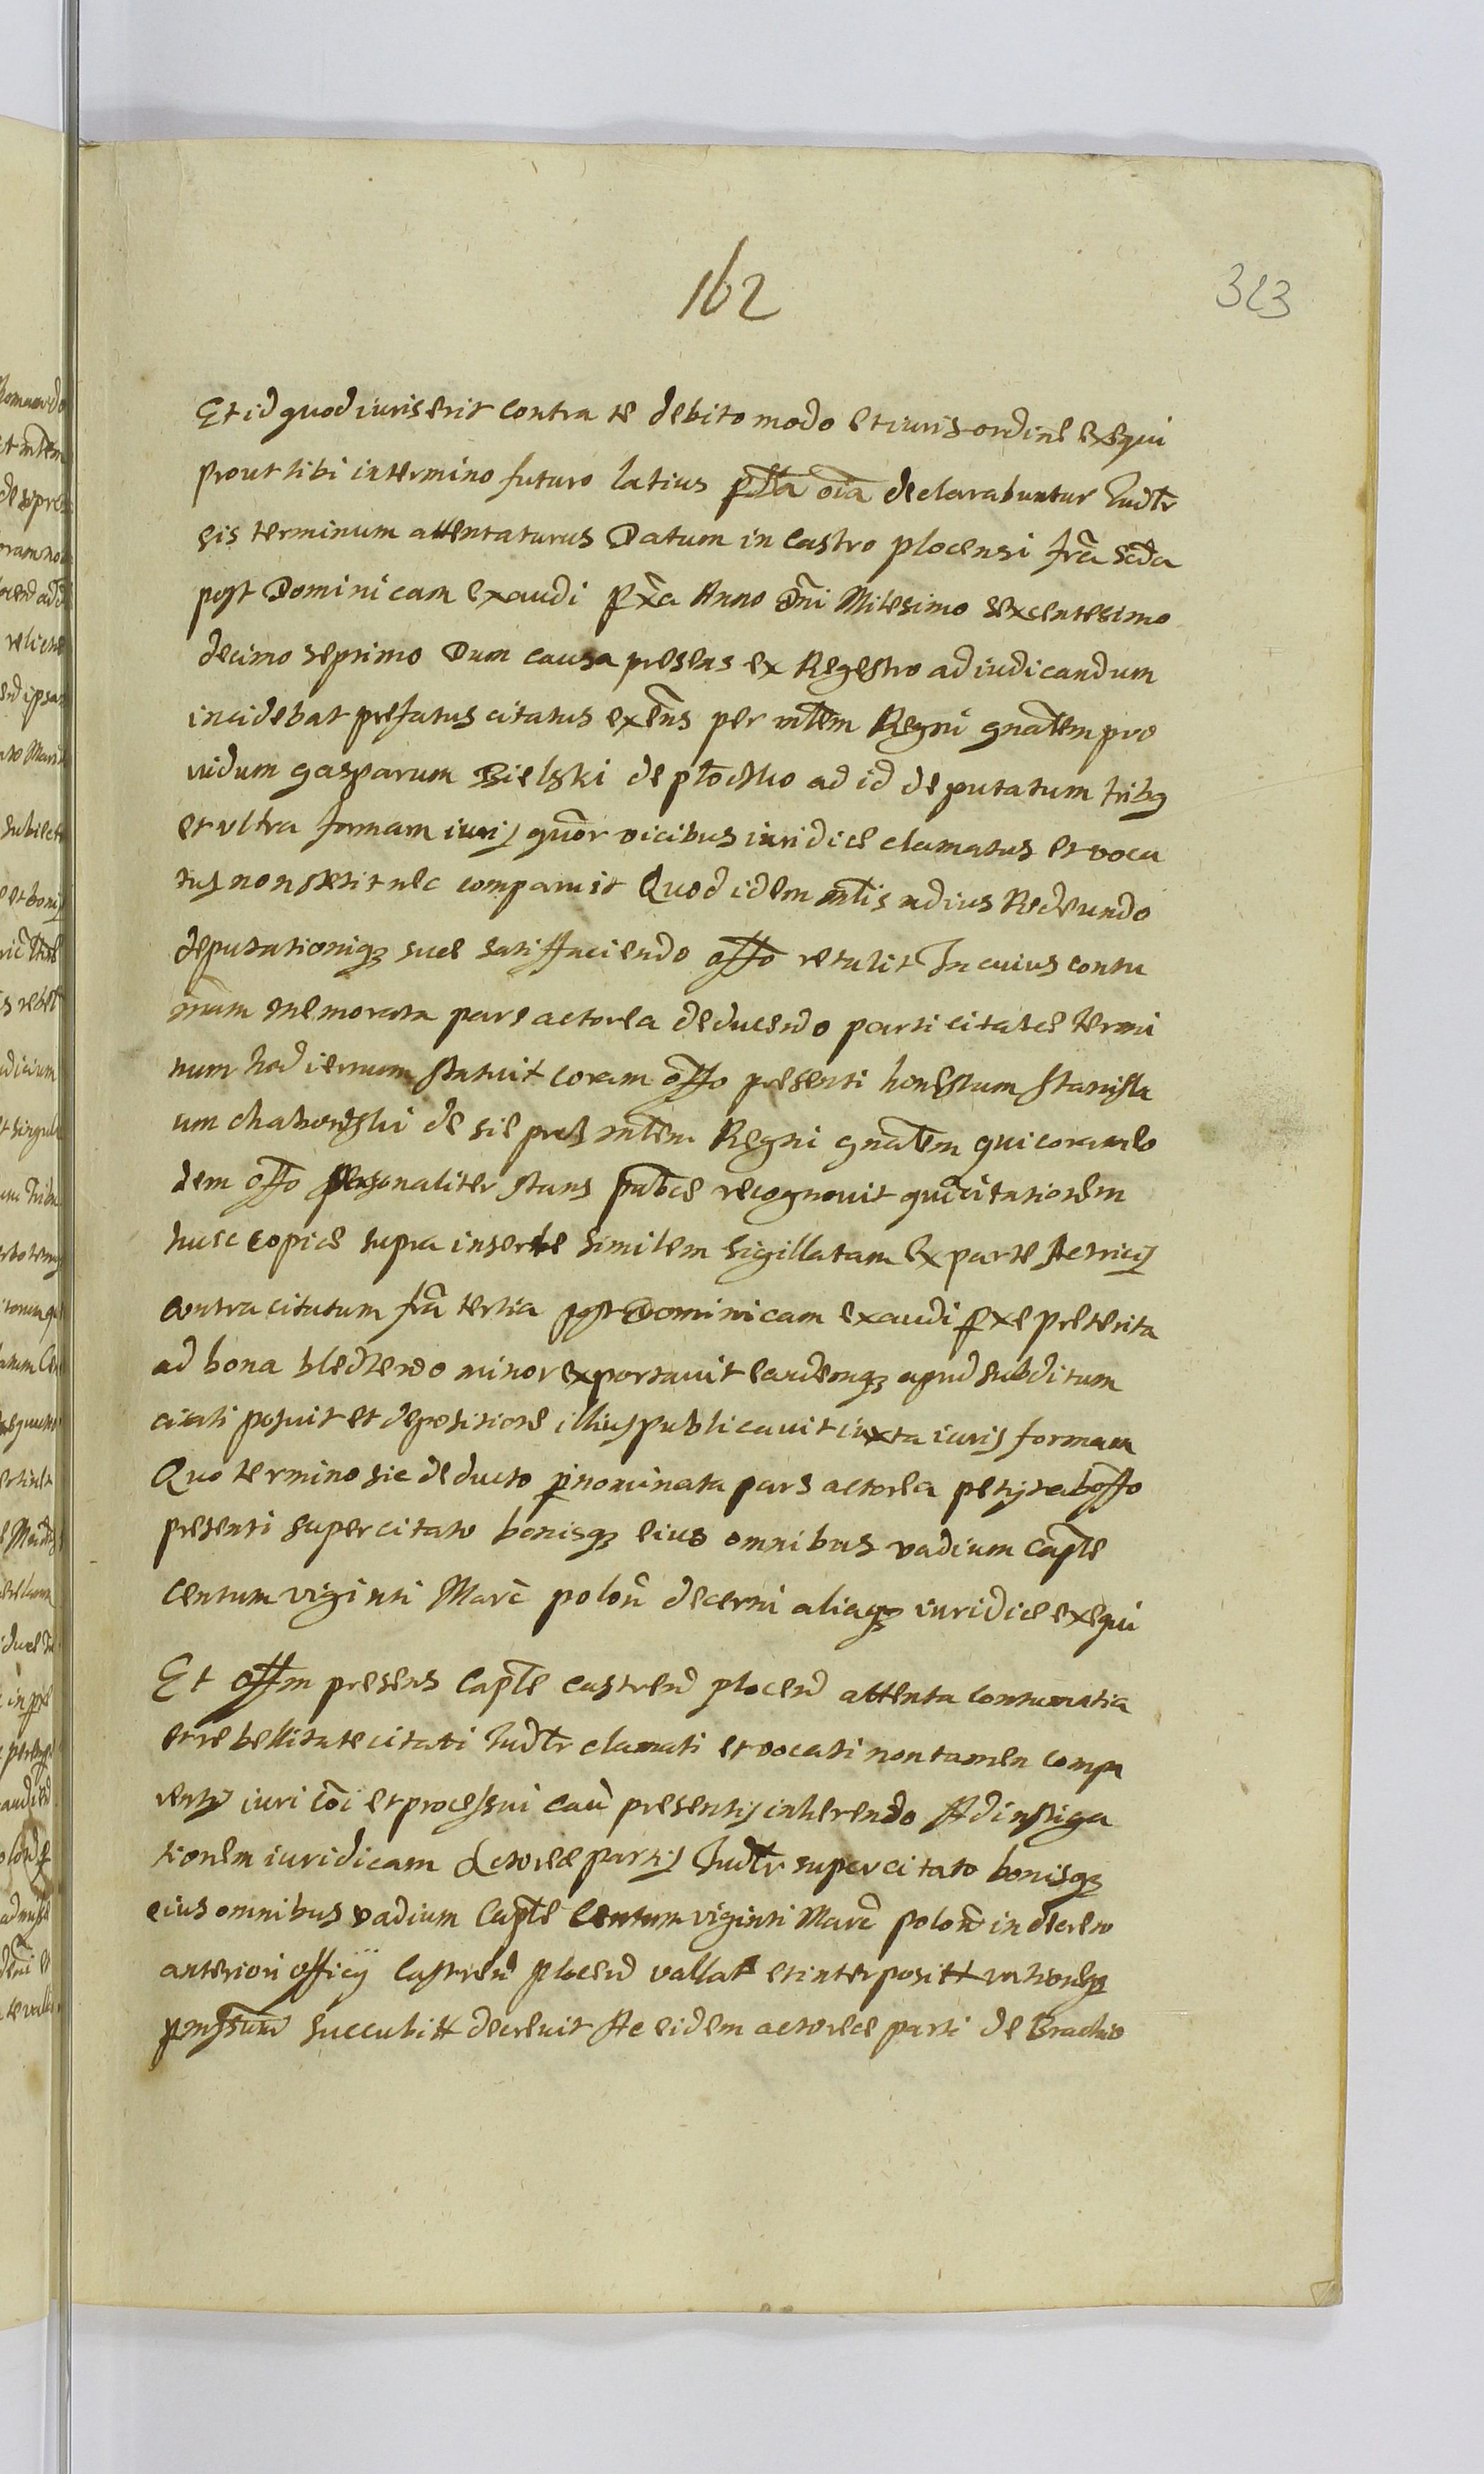 162
323
Et id quod iuris erit contra te debito modo et iuris ordine exequi
prout tibi in termino futuro latius pdta oia declarabuntur Judtr
sis terminum attentaturus Datum in Castro plocensi fra scda
post Dominicam exaudi pxa Anno Dni Milesimo sexcentesimo
decimo septimo Dum causa presens ex Regestro ad iudicandum
incidebat prefatus citatus exens per mtem Regni gnatem pro
uidum gasparum Bielski de ad id deputatum tribq
et vltra formam iuris quor vicibus iuridice clamatus et voca
tus non stetit nec comparuit Quod idem mtis Redeundo
deputationiq3 suæ satisfaciendo offo retulit In cuius contu
mam memorata pars actorea deducendo parti citatæ termi
num hodiernum statuit coram offo presenti honestum stanisla
um de mtem Regni gnatem qui coram eo
dem offo personaliter stans pubce recognouit qui citationem
huic copiæ supra insertæ similem sigillatam ex parte Actricis
contra citatum fra tertia post Dominicam exaudi pxe preterita
ad bona minor exportauit eandemq3 apud subditum
citati posuit et depositione illius publicauit iuxta iuris formam
Quo termino sic deducto pnominata pars actorea petijt ab offo
presenti super citato bonisq3 eius omnibus vadium Caplte
Centum viginti Marc polon decerni aliaq3 iuridice exequi
Et offm presens Capte castren plocen attenta contumatia
et rebellitate citati Judtr clamati et vocati non tamen compa
rentis iuri coi et processui cau presentis inherendo Ad instiga
tionem iuridicam Actoreæ partis Judtr super citato bonisq3
eius omnibus vadium Capte Centum viginti Marc polon in decreto
anteriori officij Castren plocen vallat et interposit rationeq3
succubit decreuit Ac eidem actoreæ parti de